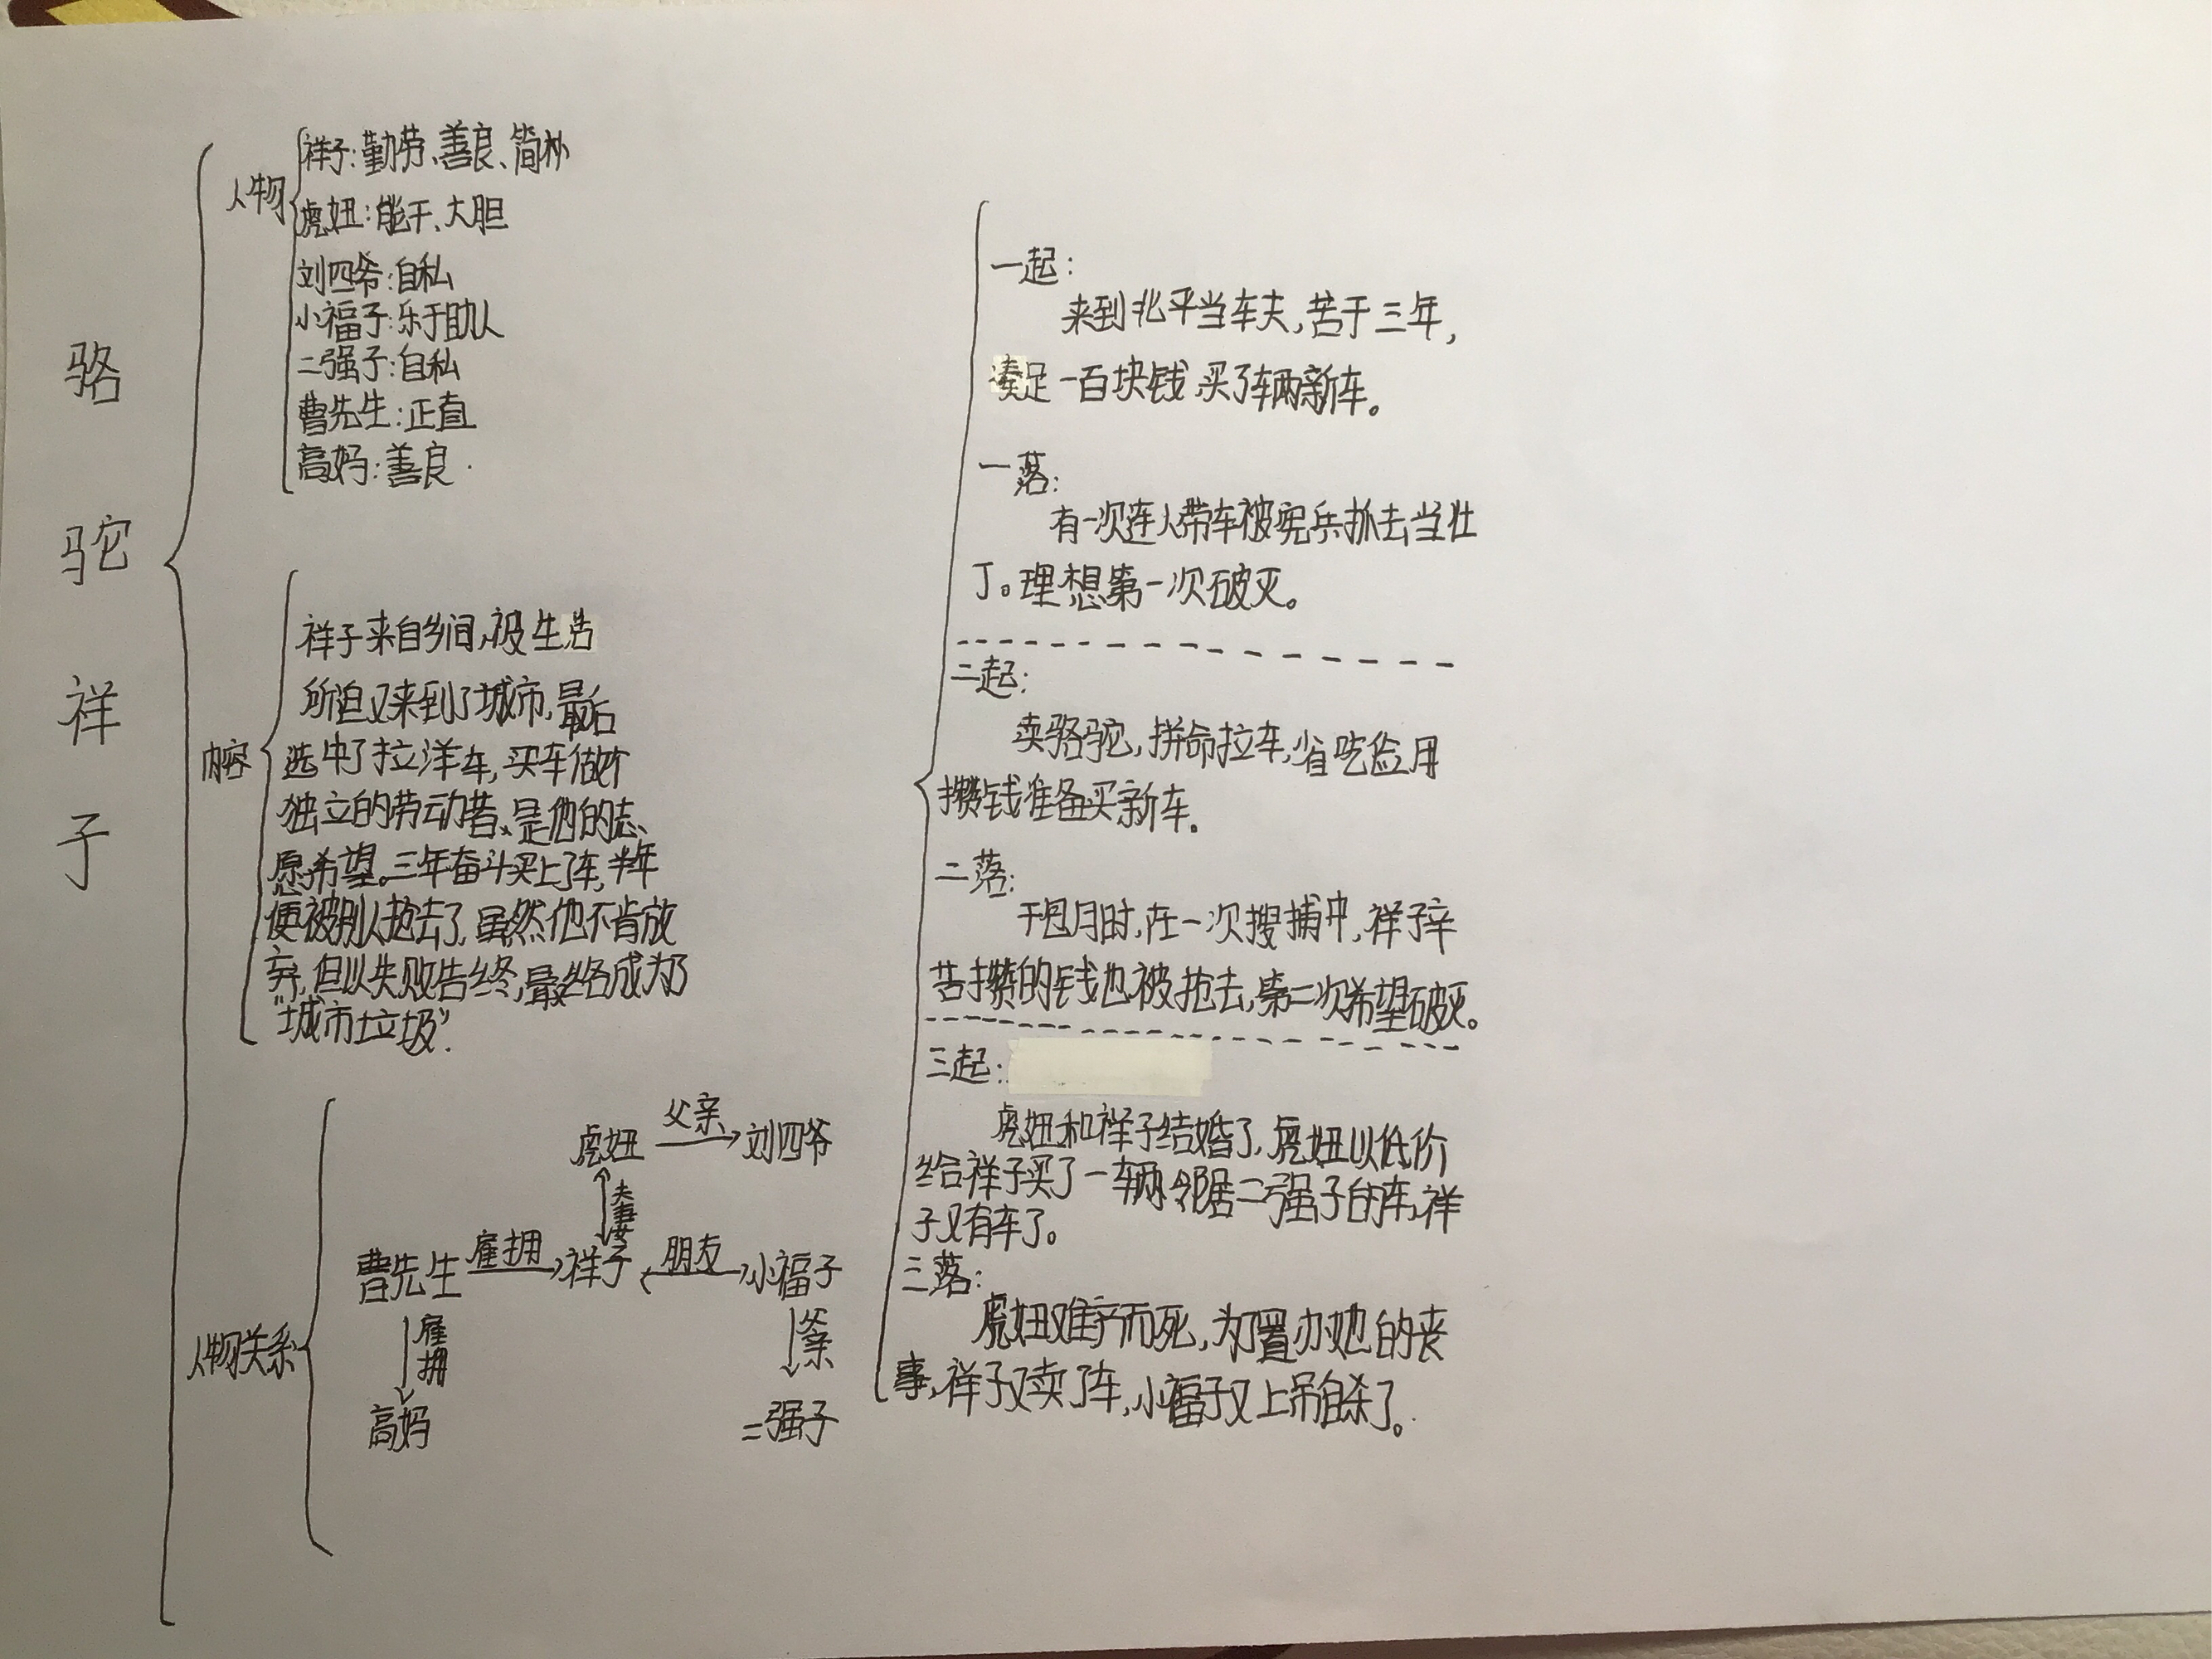 骆驼祥子
人物
祥子:勤劳、善良、简朴
虎妞:能干、大胆
刘四爷:自私
小福子:乐于助人
二强子:自私
曹先生:正直
高妈:善良.
内容
祥子来自乡间,被生活
所迫又来到了城市,最后
选中了拉洋车,买车做个
独立的劳动者、是他的志、
愿希望。三年奋斗买上了车,半年
便被别人抢去了,虽然他不肯放
弃,但以失败告终,最终成为了
“城市垃圾”.
人物关系
虎妞 父亲 刘四爷
夫妻
曹先生 雇拥 祥子 朋友 小福子
雇拥 父亲
高妈 二强子
一起:
来到北平当车夫,苦干三年,
凑足一百块钱,买了辆新车。
一落:
有一次连人带车被宪兵抓去当壮
丁。理想第一次破灭。
二起:
卖骆驼,拼命拉车,省吃俭用
攒钱准备买新车.
二落:
干包月时,在一次搜捕中,祥子辛
苦攒的钱也被抢去,第二次希望破灭。
三起:
虎妞和祥子结婚了,虎妞以低价
给祥子买了一辆邻居二强子的车,祥
子又有车了。
三落:
虎妞难产而死,为了置办她的丧
事,祥子又卖了车,小福子又上吊自杀了。